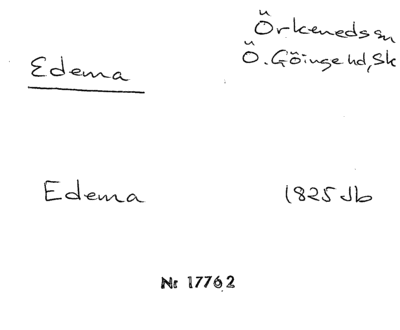 Örkeneds sn
Ö. Göinge hd, Sk
Edema
Edema 1825 Jb
Nr 17762